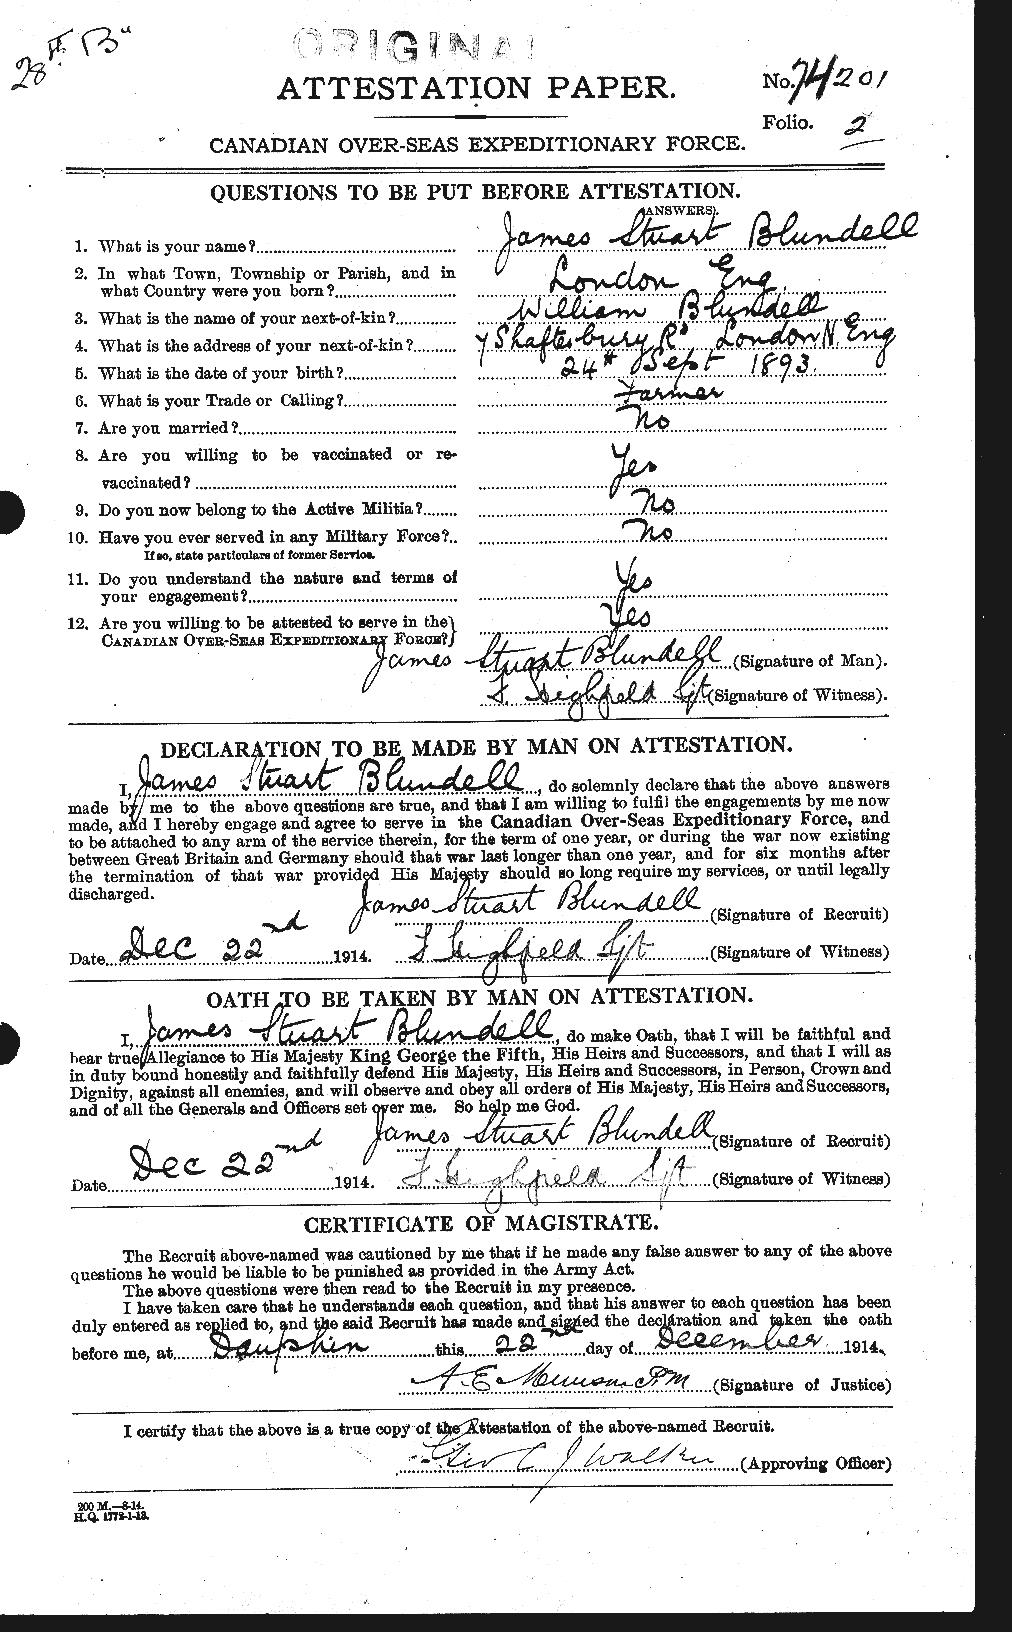 28th "B"
ORIGINAL
ATTESTATION PAPER.
No. 74201
Folio. 2
CANADIAN OVER-SEAS EXPEDITIONARY FORCE.
QUESTIONS TO BE PUT BEFORE ATTESTATION.
(ANSWERS).
1. What is your name? James Stuart Blundell
2. In what Town, Township or Parish, and in
what Country were you born? London Eng
3. What is the name of your next-of-kin? William Blundell
4. What is the address of your next-of-kin? 7 Shaftesbury Rd London N. Eng
5. What is the date of your birth? 24th Sept 1893.
6. What is your Trade or Calling? Farmer
7. Are you married? No
8. Are you willing to be vaccinated or re-
vaccinated? Yes
9. Do you now belong to the Active Militia? No
10. Have you ever served in any Military Force?.. No
If so, state particulars of former Service.
11. Do you understand the nature and terms of
your engagement? Yes
12. Are you willing to be attested to serve in the
CANADIAN OVER-SEAS EXPEDITIONARY FORCE? Yes
James Stuart Blundell (Signature of Man).
F. Highfield Sjt (Signature of Witness).
DECLARATION TO BE MADE BY MAN ON ATTESTATION.
I, James Stuart Blundell, do solemnly declare that the above answers
made by me to the above questions are true, and that I am willing to fulfil the engagements by me now
made, and I hereby engage and agree to serve in the Canadian Over-Seas Expeditionary Force, and
to be attached to any arm of the service therein, for the term of one year, or during the war now existing
between Great Britain and Germany should that war last longer than one year, and for six months after
the termination of that war provided His Majesty should so long require my services, or until legally
discharged.
James Stuart Blundell (Signature of Recruit)
Date Dec 22nd 1914. F Highfield Sjt (Signature of Witness)
OATH TO BE TAKEN BY MAN ON ATTESTATION.
I, James Stuart Blundell, do make Oath, that I will be faithful and
bear true Allegiance to His Majesty King George the Fifth, His Heirs and Successors, and that I will as
in duty bound honestly and faithfully defend His Majesty, His Heirs and Successors, in Person, Crown and
Dignity, against all enemies, and will observe and obey all orders of His Majesty, His Heirs and Successors,
and of all the Generals and Officers set over me. So help me God.
James Stuart Blundell (Signature of Recruit)
Date Dec 22nd 1914. F. Highfield Sjt (Signature of Witness)
CERTIFICATE OF MAGISTRATE.
The Recruit above-named was cautioned by me that if he made any false answer to any of the above
questions he would be liable to be punished as provided in the Army Act.
The above questions were then read to the Recruit in my presence.
I have taken care that he understands each question, and that his answer to each question has been
duly entered as replied to, and the said Recruit has made and signed the declaration and taken the oath
before me, at Dauphin this 22nd day of December 1914.
A. E. P.M (Signature of Justice)
I certify that the above is a true copy of the Attestation of the above-named Recruit.
C J Walker (Approving Officer)
200 M.—8-14.
H.Q. 1772-1-13.